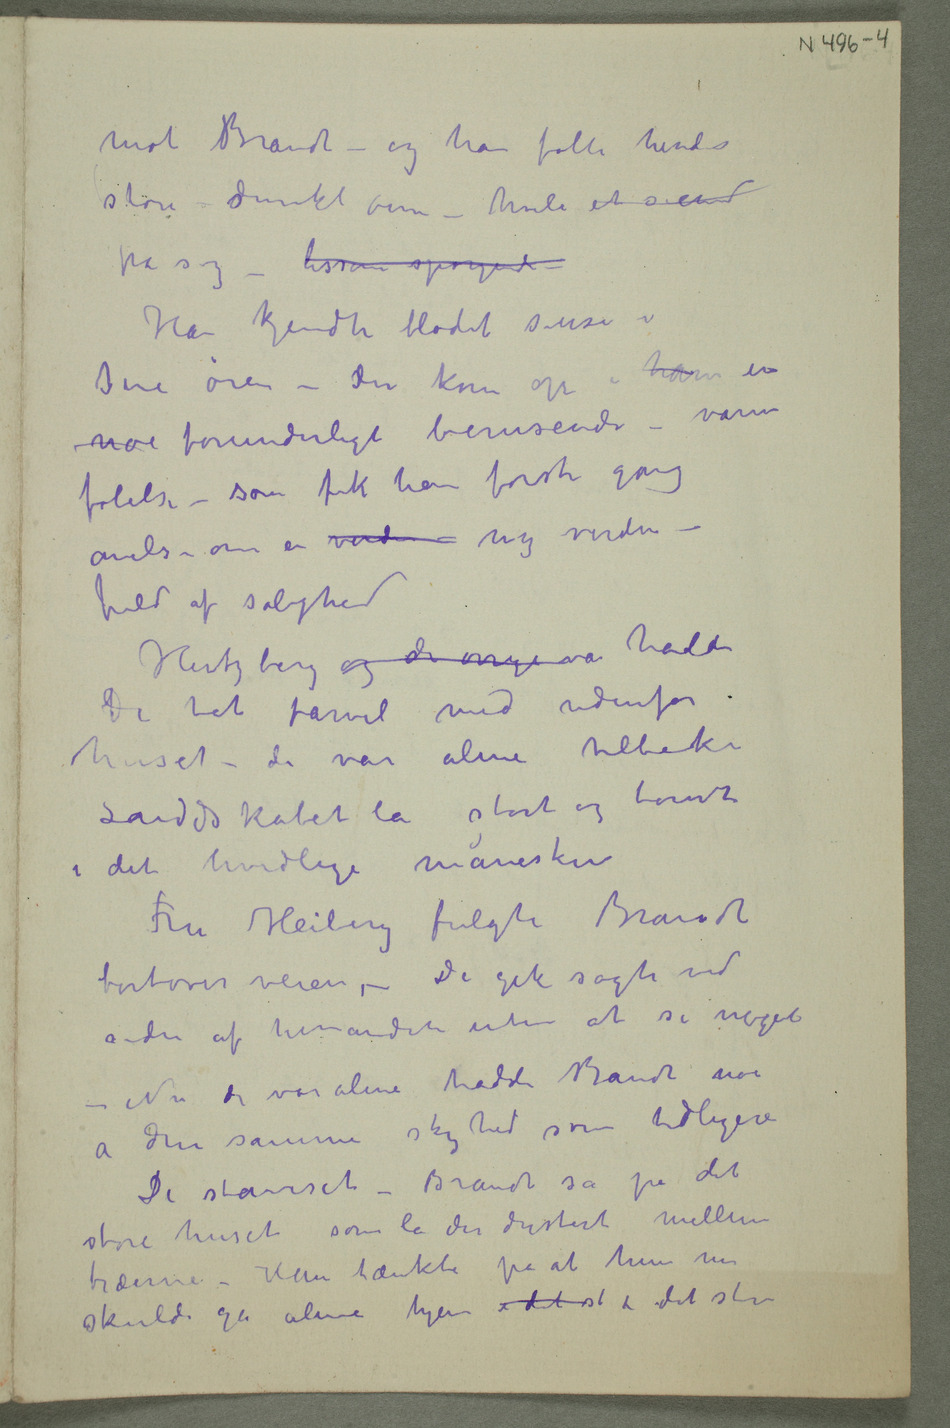 N 496-4
mot Brandt – og han følte hendes
store – dunkle øine – hvile et sted
på sig – lissom spørgende –
Han kjendte blodet suse i
sine ören – der kom op i ham en
noe forunderligt berusende – varm
følelse – som fik han første gang
anelse om en verden – ny verden –
fuld af salighed
Hertzberg og de øvrige va hadde
De tat farvel med udenfor
huset – de var alene tilbake
Landskabet la stort og tomt
i det hvidlige måneskin
Fru Heiberg fulgte Brandt
bortover veien, – De gik sagte ved
siden af hinanden uten at si noget
– Nu de var alene hadde Brandt noe
a den samme skyhed som tidligere
De stanset – Brandt sa på det
store huset som la der dystert mellem
træerne – Han tænkte på at hun nu
skulde gå alene hjem i det st i det store